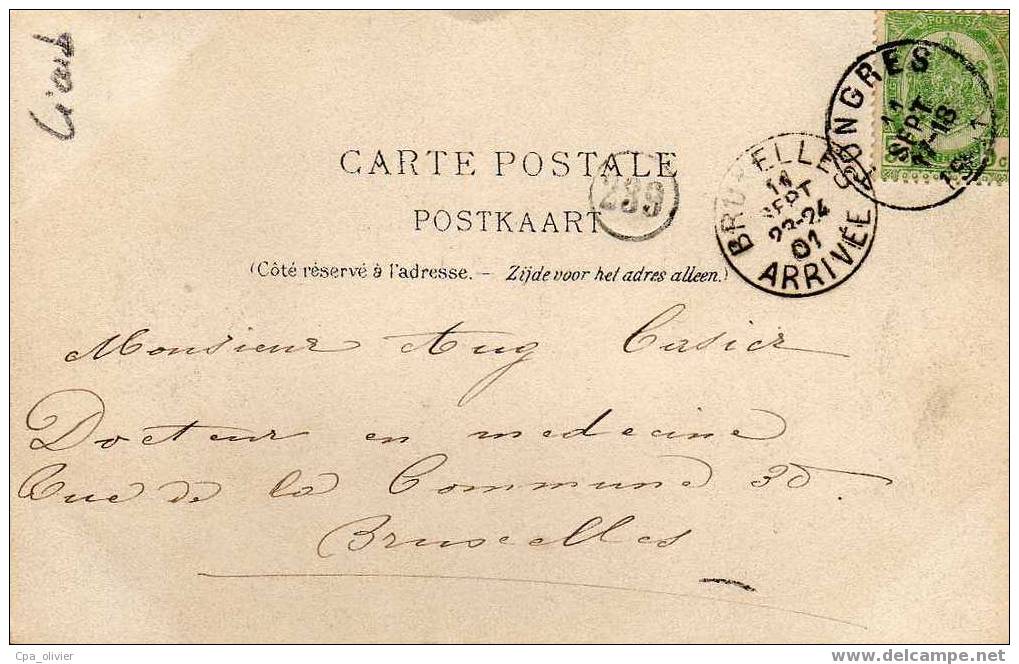 POSTES
TONGRES
11
SEPT
17-18
CARTE POSTALE
BRUXELLES
11
SEPT
23-24
01
ARRIVÉE
239
POSTKAART
(Côté réservé à l'adresse. — Zijde voor het adres alleen.)
Monsieur Aug Casier
Docteur en medecine
Rue de la Commune 30.
Bruxelles
Cpa_olivier
www.delcampe.net